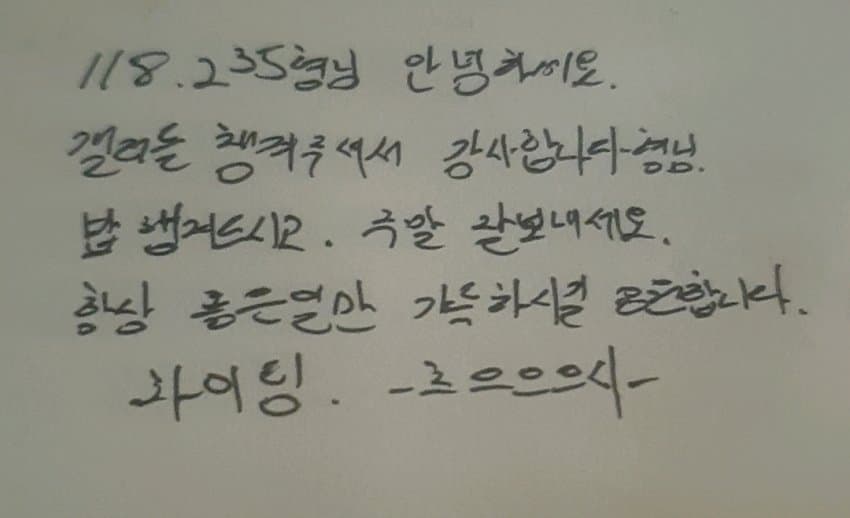 118.235형님 안녕하세요.
챙겨주셔서 감사합니다 형님.
밥 챙겨드시고. 주말 잘보내세요.
항상 좋은일만 가득하시길 합니다.
화이팅. -르으으으시-